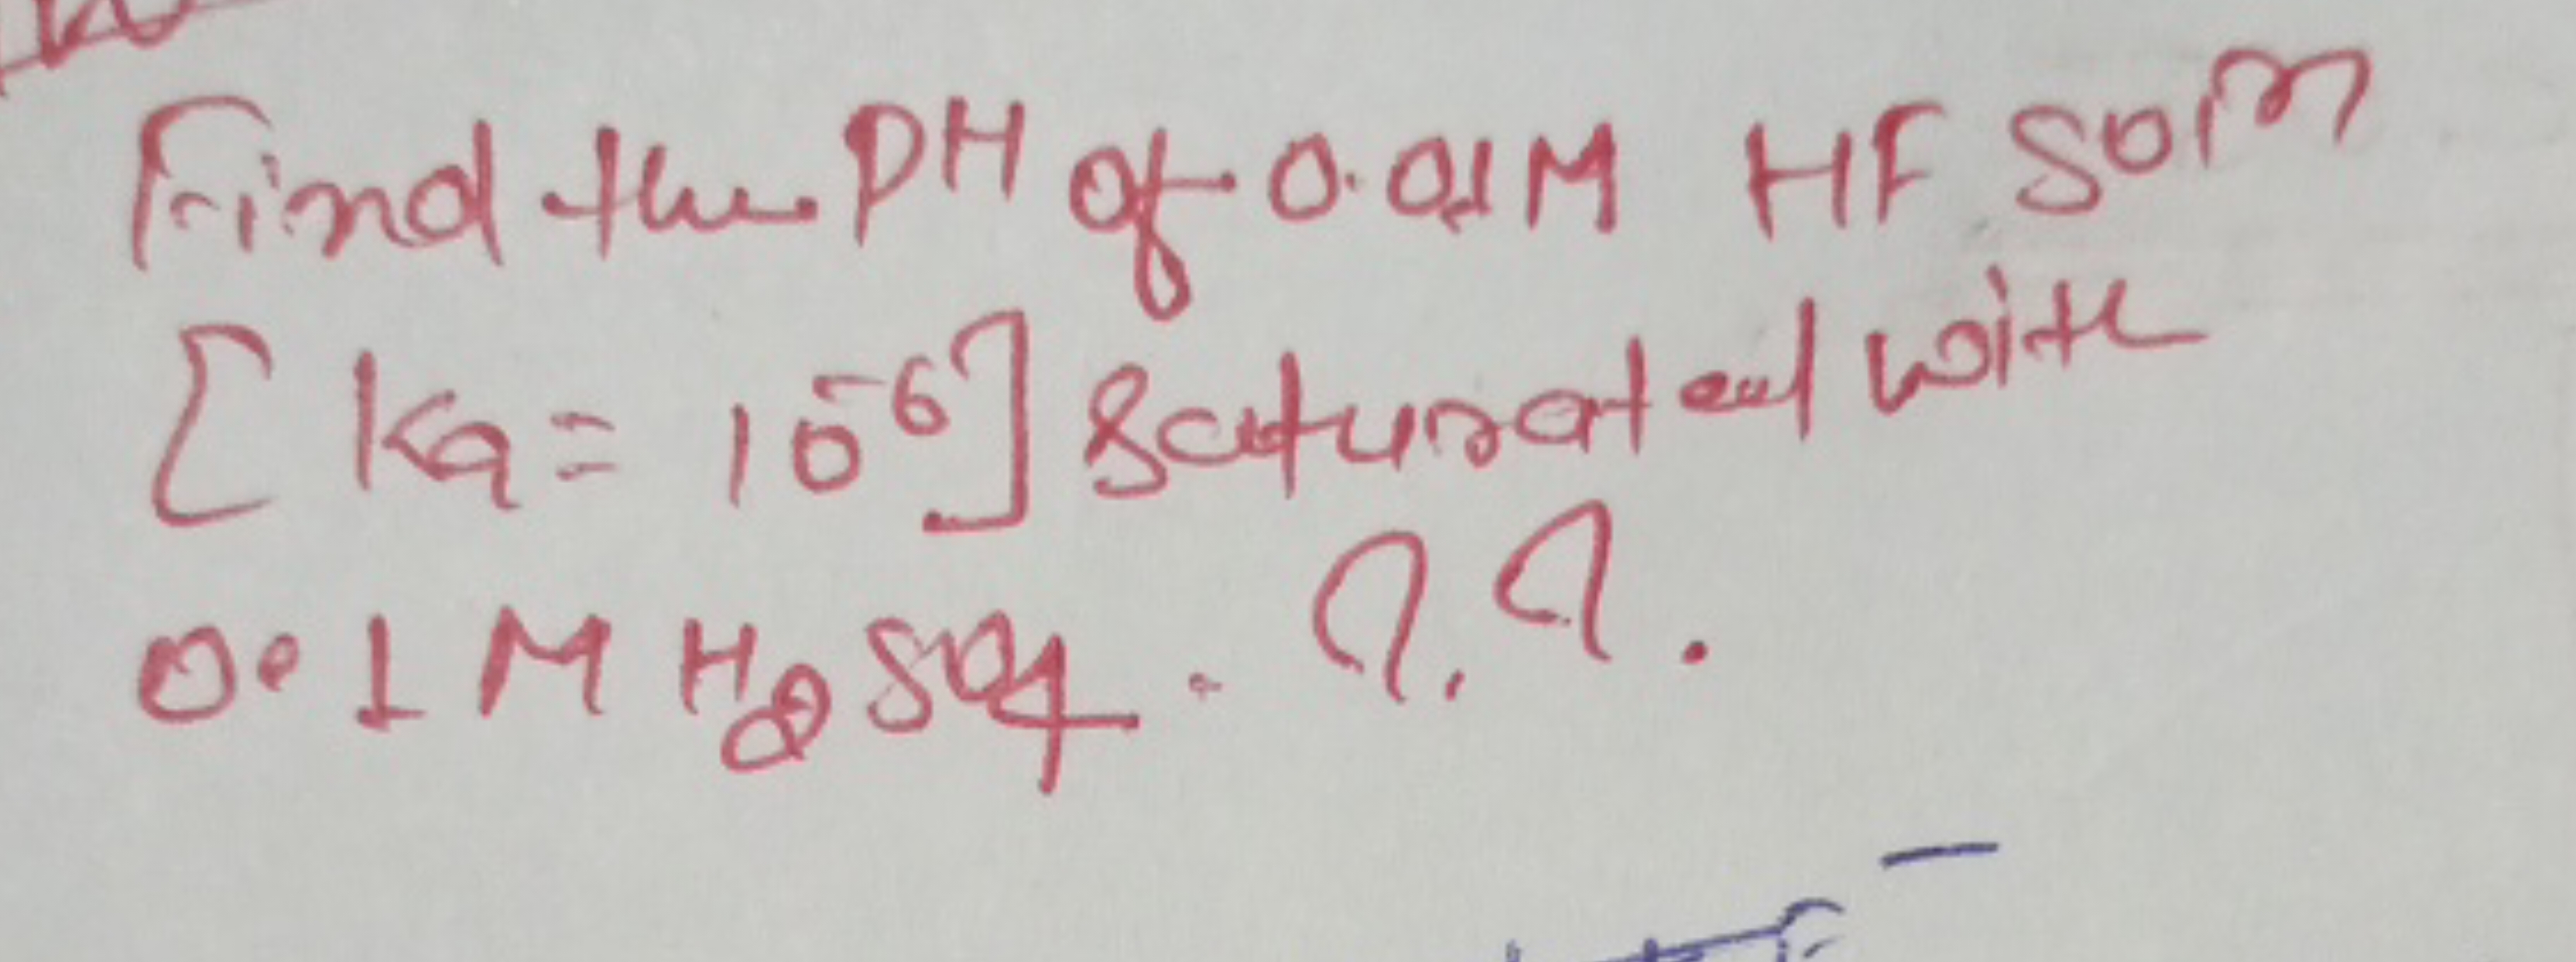 Find the PH of 0.01M HF Soln
[Ka = 10⁻⁶] Saturated with
0.1 M H2SO4. ?.?.